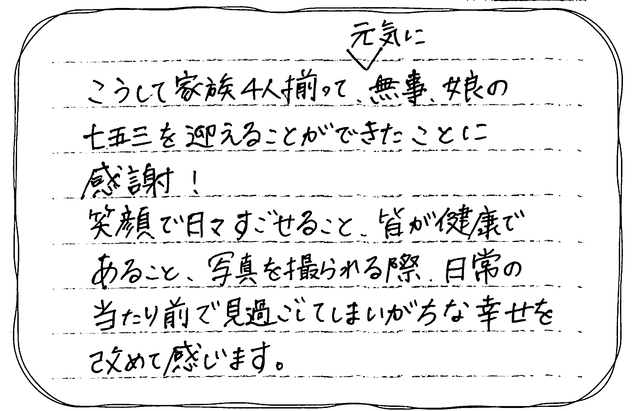 元気に
こうして家族4人揃って、無事、娘の
七五三を迎えることができたことに
感謝！
笑顔で日々すごせること、皆が健康で
あること、写真を撮られる際、日常の
当たり前で見過ごしてしまいがちな幸せを
改めて感じます。